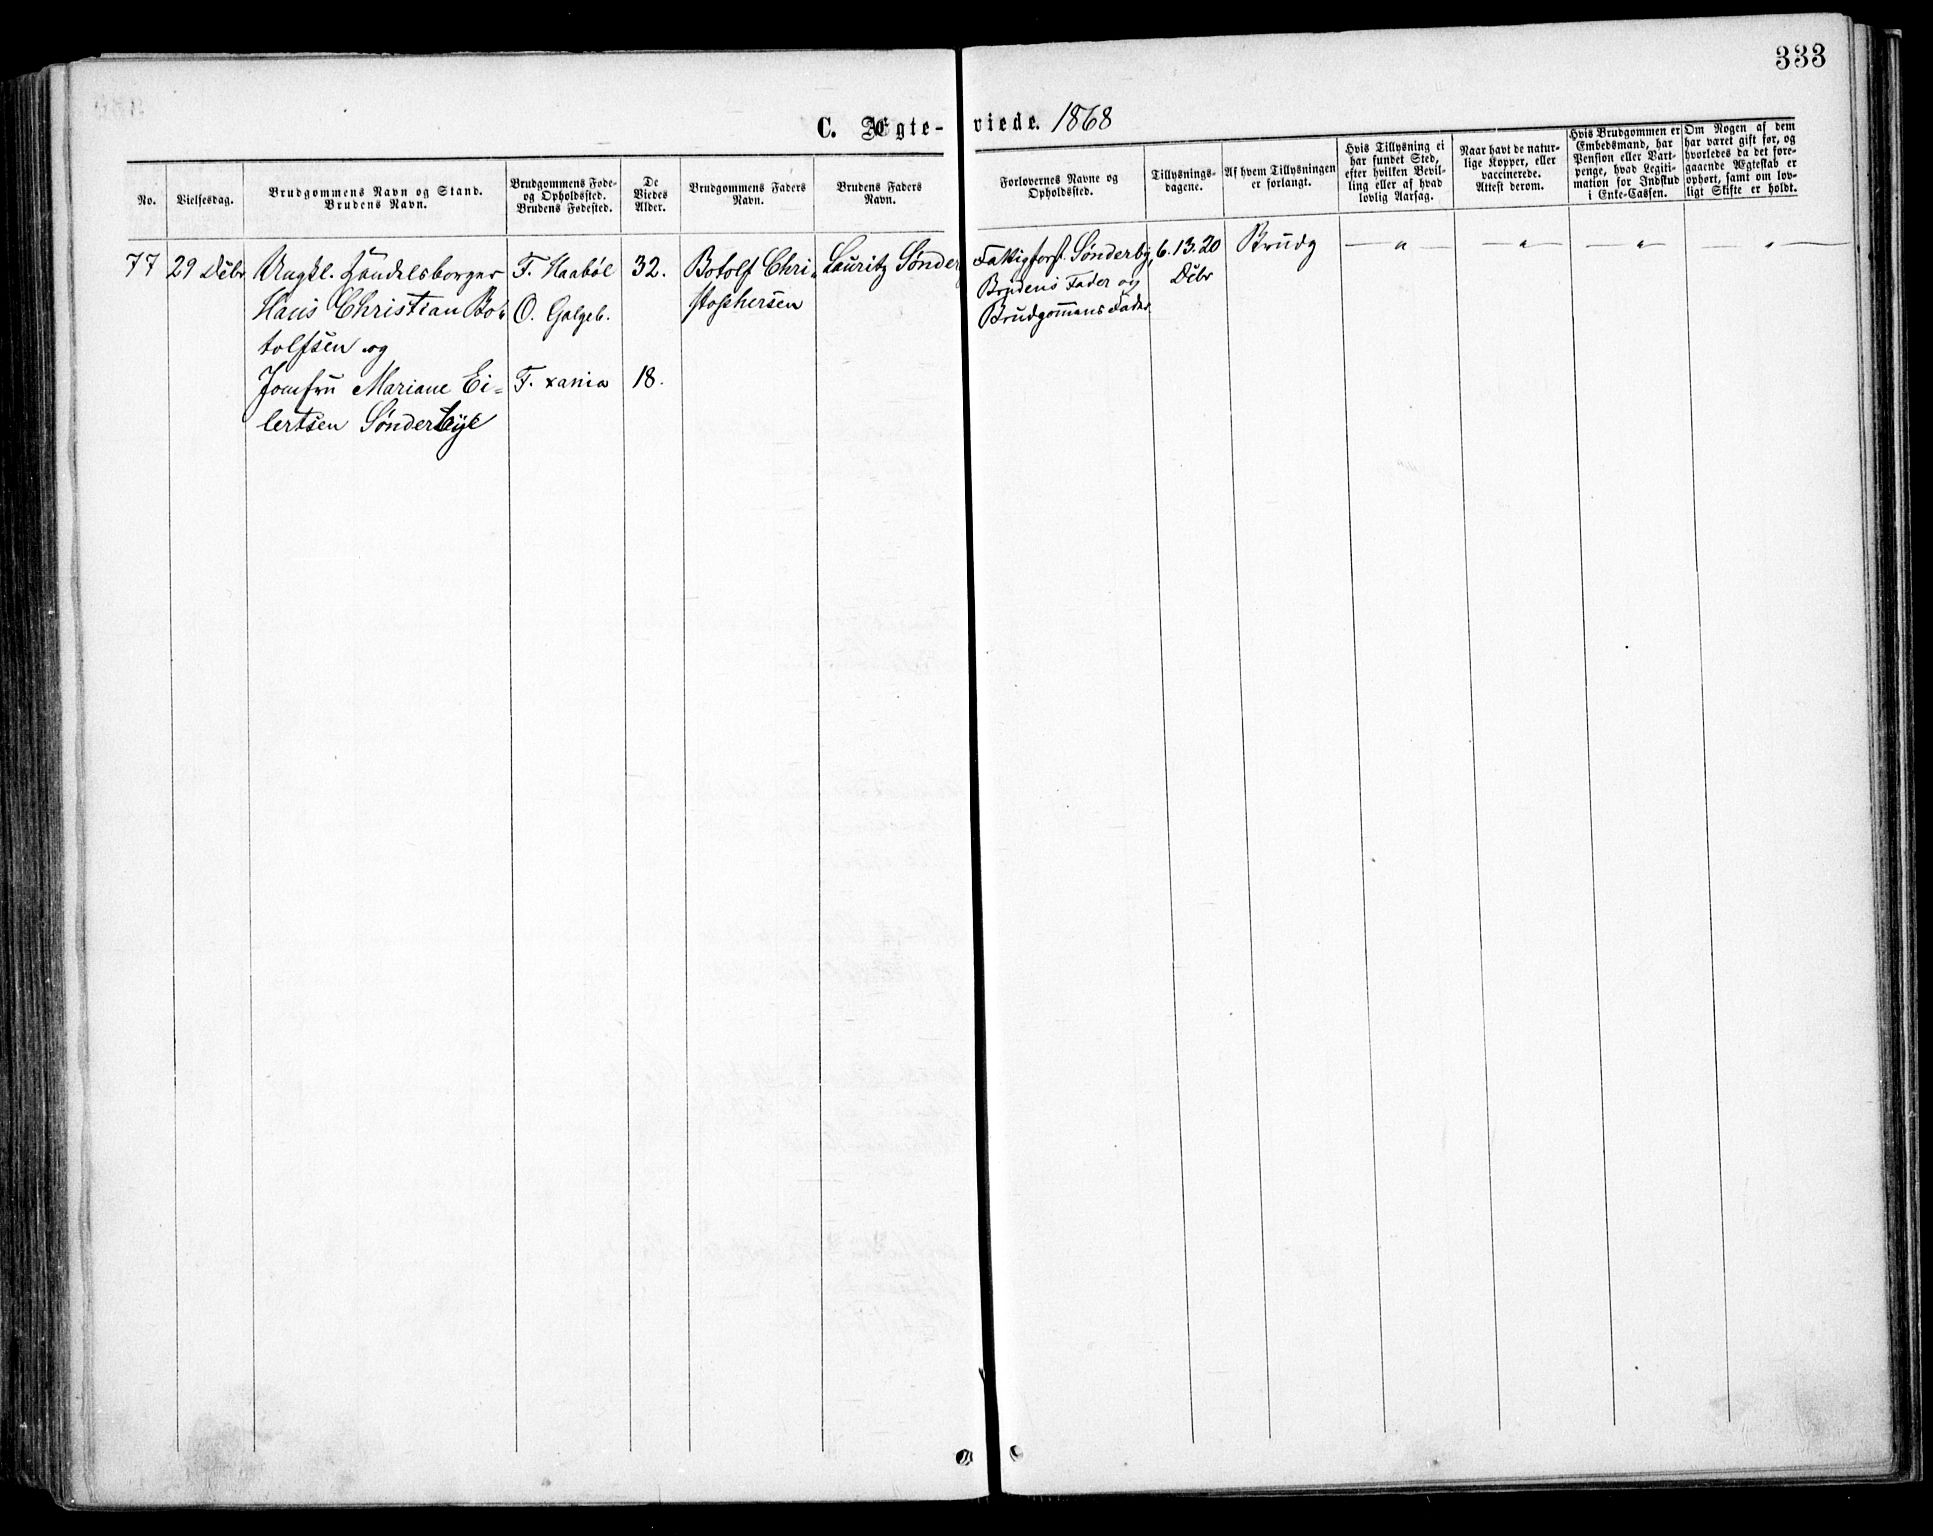 333
C. Ægte-viede. 1868
No.
Vielsesdag.
Brudgommens Navn og Stand.
Brudens Navn.
Brudgommens Føde-
og Opholdssted.
Brudens Fødested.
De
Viedes
Alder.
Brudgommens Faders
Navn.
Brudens Faders
Navn.
Forlovernes Navne og
Opholdssted.
Tillysnings-
dagene.
Af hvem Tillysningen
er forlangt.
Hvis Tillysning ei
har fundet Sted,
efter hvilken Bevil-
ling eller af hvad
lovlig Aarsag.
Naar havt de natur-
lige Kopper, eller
vaccinerede.
Attest derom.
Hvis Brudgommen er
Embedsmand, har
Pension eller Vart-
penge, hvad Legiti-
mation for Indskud
i Enke-Cassen.
Om Nogen af dem
har været gift før, og
hvorledes da det fore-
gaaende Ægteskab er
ophørt, samt om lov-
ligt Skifte er holdt.
77
29 Debr
Ungkl. Handelsborger
Hans Christian Bo-
tolfsen og
Jomfru Mariane Ei-
lertsen Sønderbye
F. Haabøl
O. Galgeb.
F. xania
32.
18.
Botolf Chri-
stophersen
Lauritz Sønder
Fattigforst. Sønderby,
Brudens Fader og
Brudgomens Fader
6. 13. 20
Debr
Brudg
— " — — " — — " — — " —